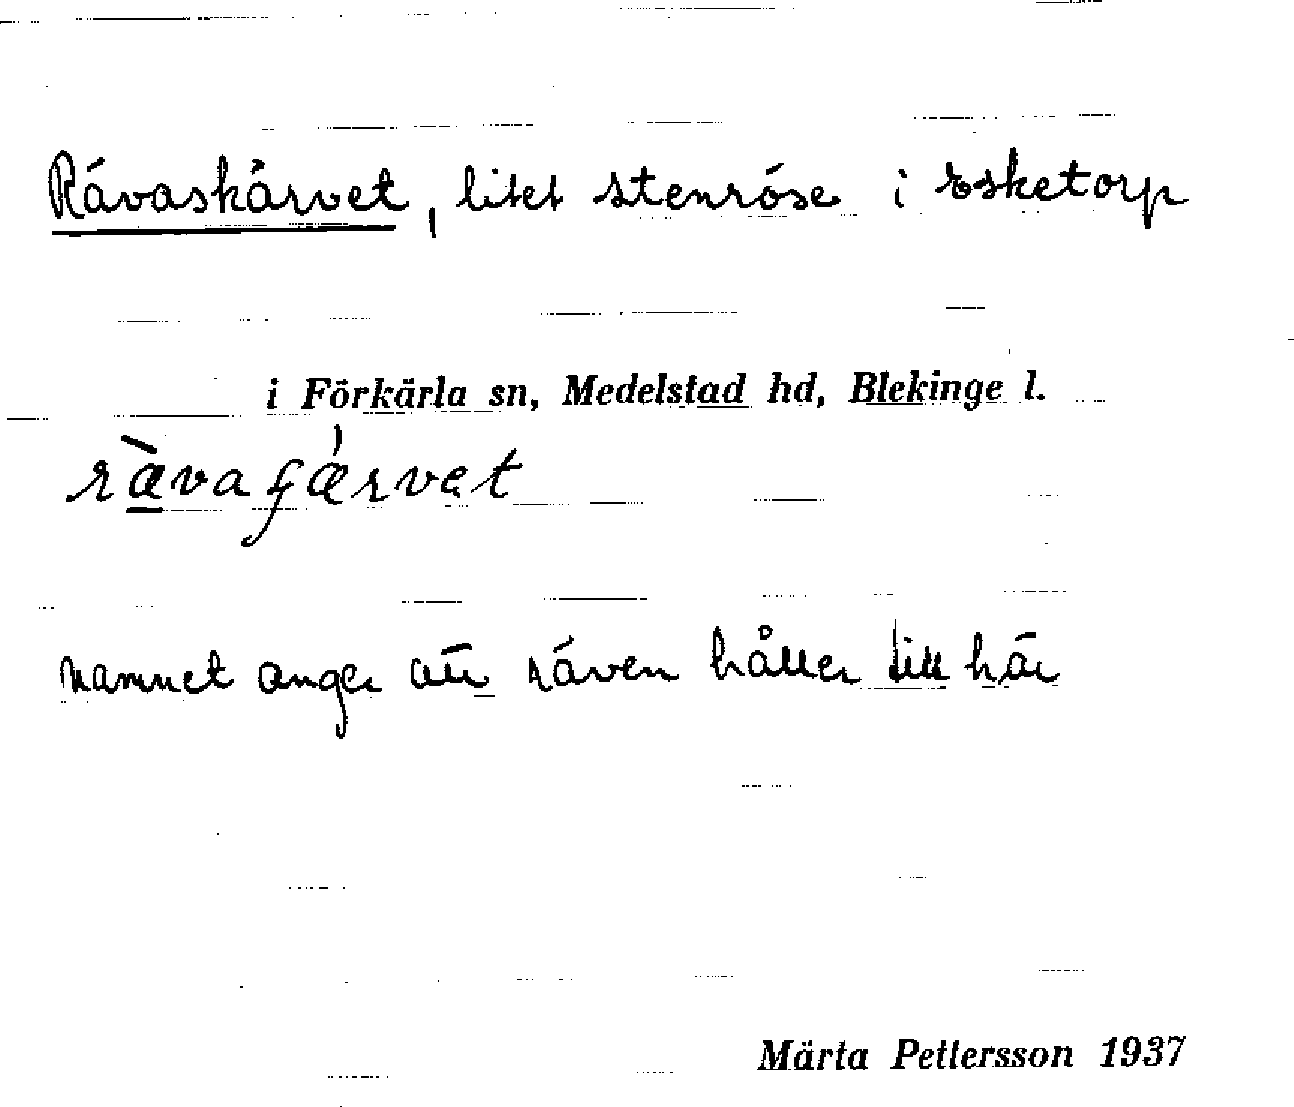 Rävaskärvet, litet stenröse i Esketorp
i Förkärla sn, Medelstad hd, Blekinge l.
ræ̀vaʃǽrvet
namnet anger att räven håller till här
Märta Pettersson 1937